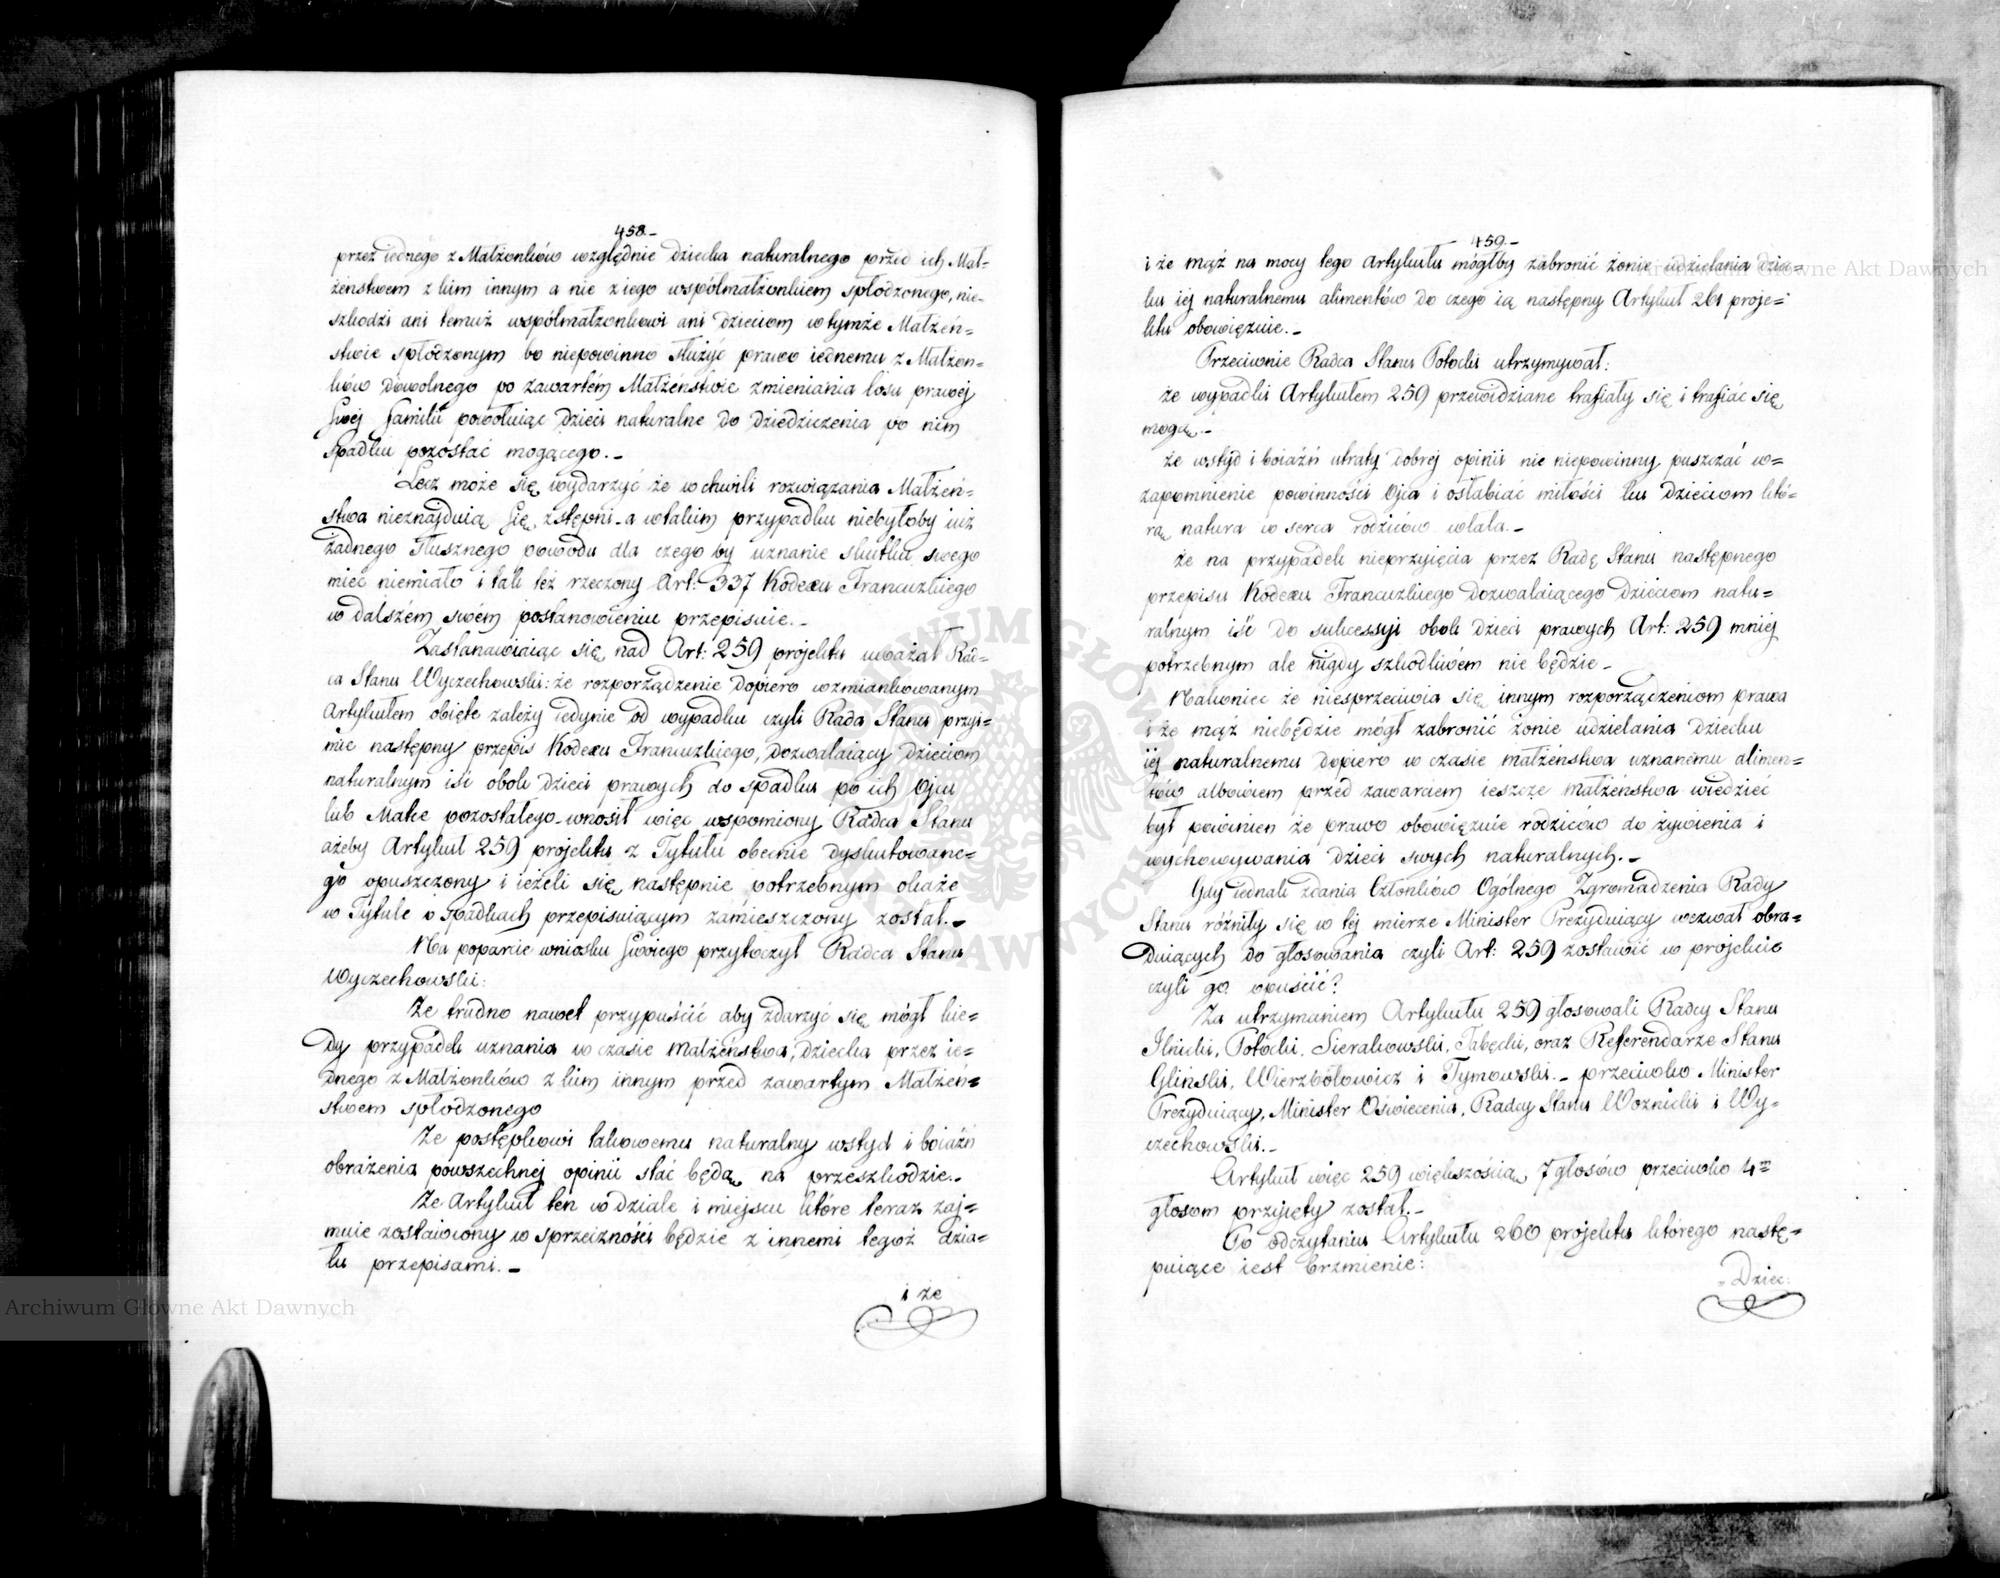 458.-
przez iednego z Małżonków względnie dziecka naturalnego przed ich Mał=
żeństwem z kim innym a nie z iego współmałżonkiem spłodzonego, nie-
szkodzi ani temuż współmałżonkowi ani dzieciom w tymże Małżeń=
stwie spłodzonym bo niepowinno służyć prawo iednemu z Małżon=
ków dowolnego po zawartém Małżeństwie zmieniania losu prawej
Swej familii powołuiąc dzieci naturalne do dziedziczenia po nim
spadku pozostać mogącego.-
Lecz może się wydarzyć że w chwili rozwiązania Małżeń=
stwa nieznajduią Się zstępni - a w takim przypadku niebyłoby iuż
żadnego słusznego powodu dla czego by uznanie skutku swego
mieć niemiało i tak też rzeczony Art: 337 Kodexu Francuzkiego
w dalszém swém postanowieniu przepisuie.-
Zastanawiaiąc się nad Art: 259 projektu uważał Rad=
ca Stanu Wyczechowski: że rozporządzenie dopiero wzmiankowanym
Artykułem obięte zależy iedynie od wypadku czyli Rada Stanu przyi=
mie następny przepis Kodexu Francuzkiego, dozwalaiący dzieciom
naturalnym iść obok dzieci prawych do spadku po ich Ojcu
lub Matce pozostałego - wnosił więc wspomiony Radca Stanu
ażeby Artykuł 259 projektu z Tytułu obecnie dyskutowane=
go opuszczony i ieżeli się następnie potrzebnym okaże
w Tytule o spadkach przepisuiącym zamieszczony został.-
Na poparcie wniosku Swoiego przytoczył Radca Stanu
Wyczechowski:
Że trudno nawet przypuścić aby zdarzyć się mógł kie=
dy przypadek uznania w czasie Małżeństwa, dziecka przez ie=
dnego z Małżonków z kim innym przed zawartym Małżeń=
stwem spłodzonego
Że postępkowi takowemu naturalny wstyd i boiaźń
obrażenia powszechnej opinii stać będą na przeszkodzie.-
Że Artykuł ten w dziale i miejscu które teraz zaj=
muie zostawiony w sprzeczności będzie z innemi tegoż dzia=
łu przepisami.-
i że
459.-
i że mąż na mocy tego Artykułu mógłby zabronić żonie udzielania dzie=
ku iej naturalnemu alimentów do czego ią następny Artykuł 261 proje=
ktu obowięzuie.-
Przeciwnie Radca Stanu Potocki utrzymywał:
że wypadki Artykułem 259 przewidziane trafiały się i trafiać się
mogą.-
że wstyd i boiaźń utraty dobrej opinii nie niepowinny puszczać w=
zapomnienie powinności Ojca i osłabiać miłości ku dzieciom któ=
rą natura w serca rodziców wlała.-
że na przypadek nieprzyięcia przez Radę Stanu następnego
przepisu Kodexu Francuzkiego dozwalaiącego dzieciom natu=
ralnym iść do sukcessyi obok dzieci prawych Art: 259 mniej
potrzebnym ale nigdy szkodliwém nie będzie -
Nakoniec że niesprzeciwia się innym rozporządzeniom prawa
i że mąż niebędzie mógł zabronić żonie udzielania dziecku
iéj naturalnemu dopiero w czasie małżeństwa uznanému alimen=
tów albowiem przed zawarciem ieszcze małżeństwa wiedzieć
był powinien że prawo obowięzuie rodziców do żywienia i
wychowywania dzieci swych naturalnych.-
Gdy iednak zdania Członków Ogólnego Zgromadzenia Rady
Stanu różniły się w téj mierze Minister Prezyduiący wezwał obra=
duiących do głosowania czyli Art: 259 zostawić w projekcie
czyli go opuścić?
Za utrzymaniem Artykułu 259 głosowali Radcy Stanu
Ilnicki, Potocki, Sierakowski, Tabęcki, oraz Referendarze Stanu
Gliński, Wierzbołowicz i Tymowski.- przeciwko Minister
Prezyduiący, Minister Oświecenia, Radcy Stanu Woźnicki i Wy=
czechowski.-
Artykuł więc 259 większością 7 głosów przeciwko 4m
głosom przyięty został.-
Po odczytaniu Artykułu 260 projektu którego nastę=
puiące iest brzmienie:
„Dziec:
Archiwum Główne Akt Dawnych